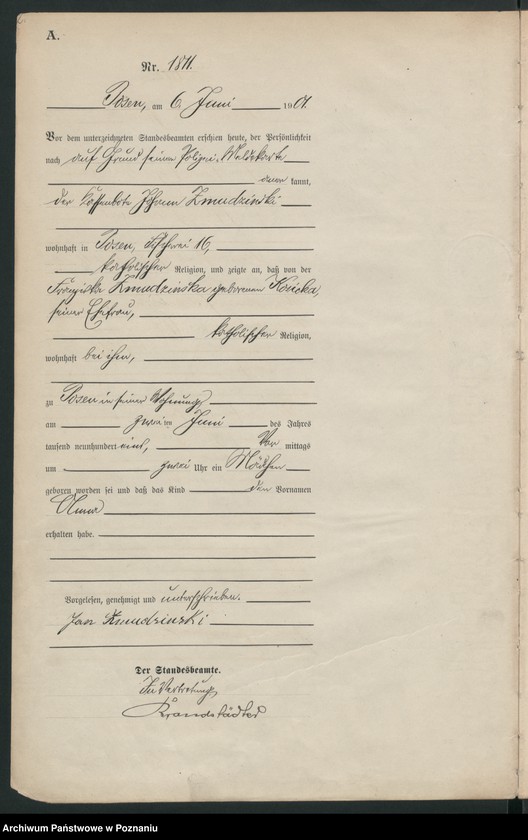 A.
Nr. 1871.
Posen, am 6. Juni 1901.
Vor dem unterzeichneten Standesbeamten erschien heute, der Persönlichkeit
nach auf Grund seiner Polizei-Meldekarte
kannt,
der Johann Zmudzinski
wohnhaft in Posen, Fischerei 16,
katholischer Religion, und zeigte an, daß von der
Franziska Zmudzinska geborenen
seiner Ehefrau,
katholischer Religion,
wohnhaft bei ihm,
zu Posen in seiner Wohnung
am zweiten Juni des Jahres
tausend neunhundert eins, Vor mittags
um zwei Uhr ein Mädchen
geboren worden sei und daß das Kind den Vornamen
Anna
erhalten habe.
Vorgelesen, genehmigt und unterschrieben.
Jan Zmudzinski
Der Standesbeamte.
In Vertretung
Brandstädter
Archiwum Państwowe w Poznaniu